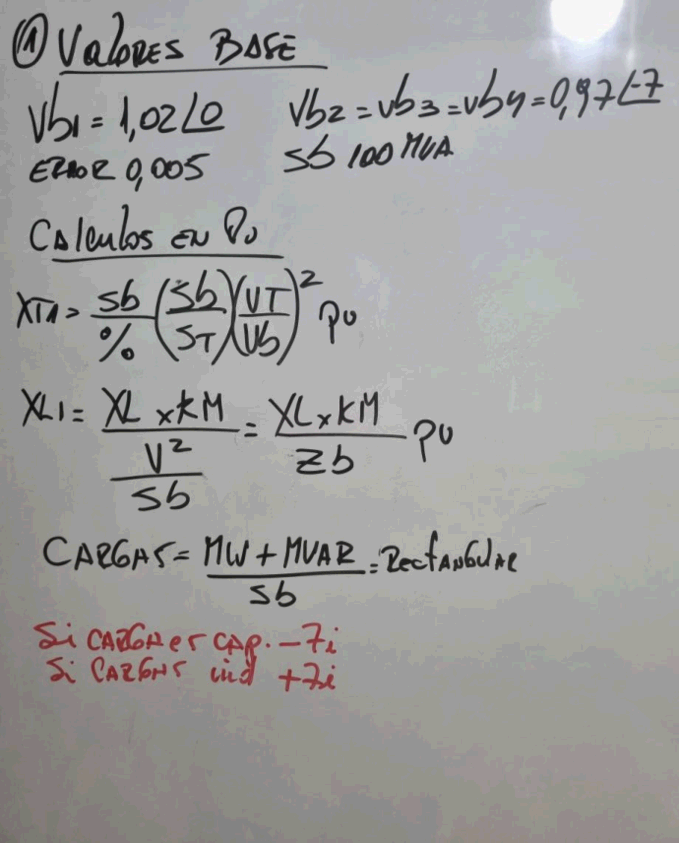 ① Valores Base
Vb1 = 1,02∠0 Vb2 = Vb3 = Vb4 = 0,97∠-7
Error 0,005 Sb 100 MVA
Calculos en Pu
XT1 = Sb/% (Sb/ST)(VT/Vb)² Pu
XL1 = XL x KM / (V²/Sb) = XL x KM / Zb Pu
Cargas = MW + MVAR / Sb = Rectangular
Si carga es cap. -7i
Si cargas ind +7i